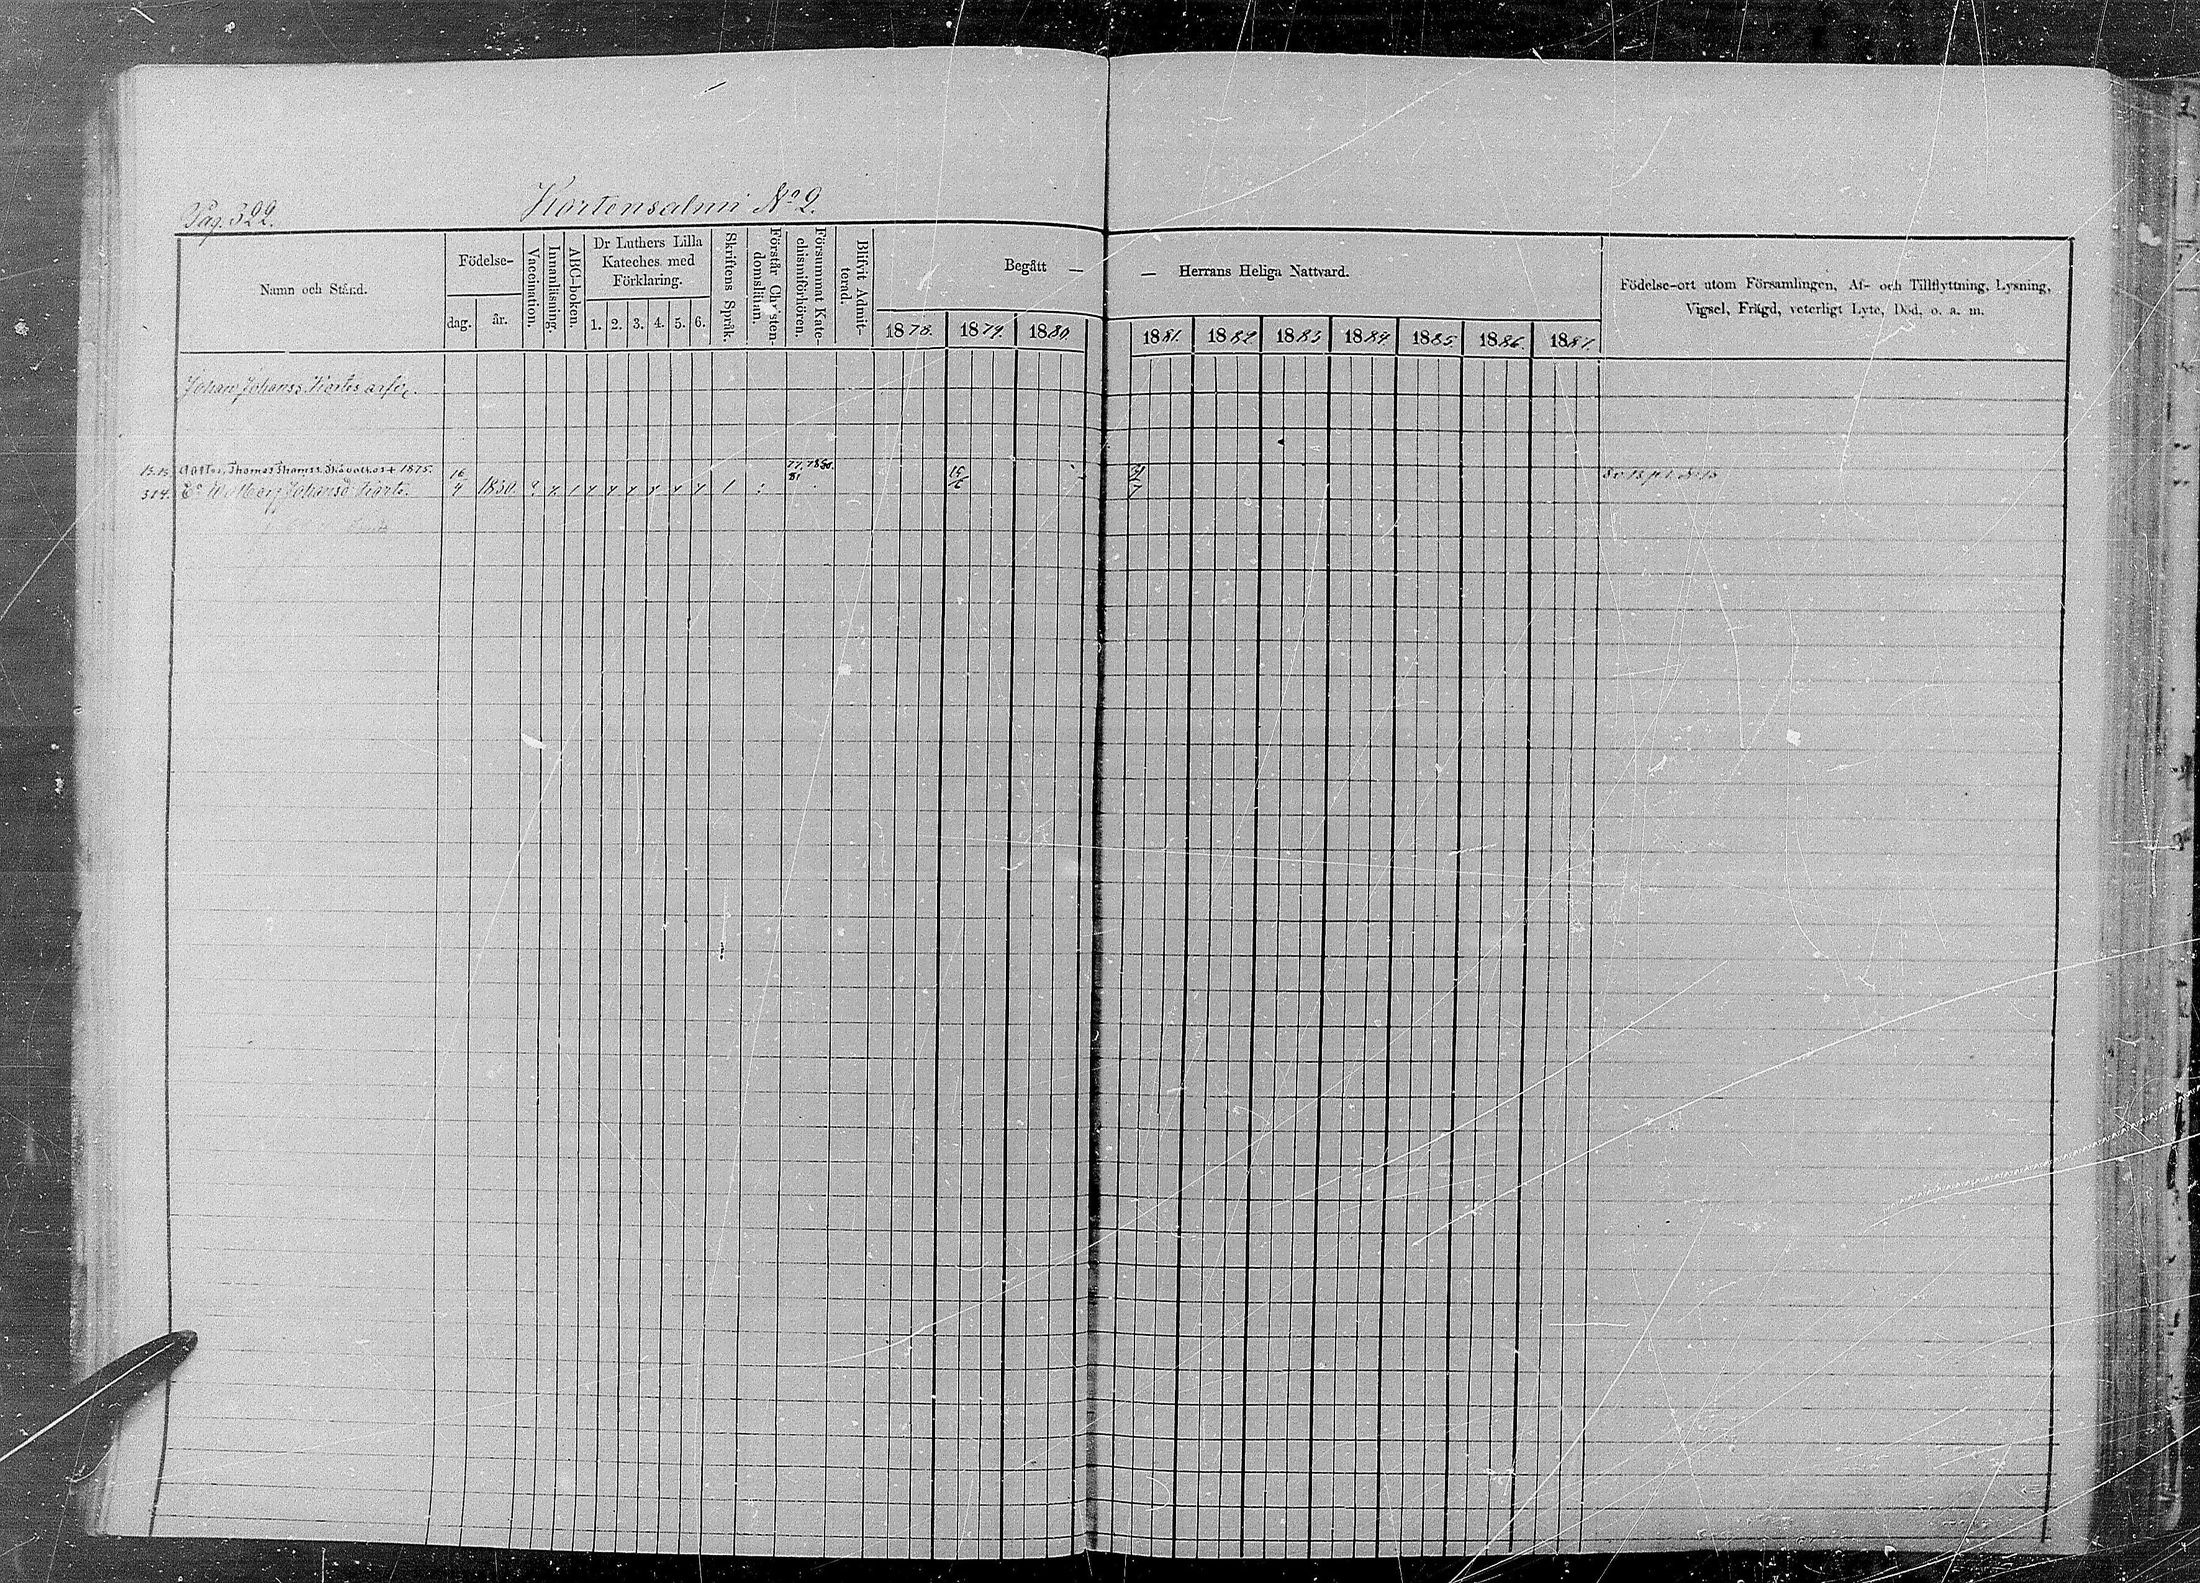 Pag. 322.
Kortensalmi No 2.
Namn och Stånd.
Födelse-
dag.
år.
Vaccination.
Innanläsning.
ABC-boken.
Dr Luthers Lilla
Kateches med
Förklaring.
1. 2. 3. 4. 5. 6.
Skriftens Språk.
Förstår Christen-
domslären.
Försummat Kate-
chismiförhören.
Blifvit Admit-
terad.
Begått —
— Herrans Heliga Nattvard.
1878. 1879. 1880. 1881. 1882 1883 1884 1885 1886. 1887.
Födelse-ort utom Församlingen, Af- och Tillflyttning, Lysning,
Vigsel, Frägd, veterligt Lyte, Död, o. a. m.
Johan Johanss. Kortes arfv.
Thomas Thomss. + 1875. 77. 78 80.
314. Johansd. Korte. 16/4 1850. 81 15/6